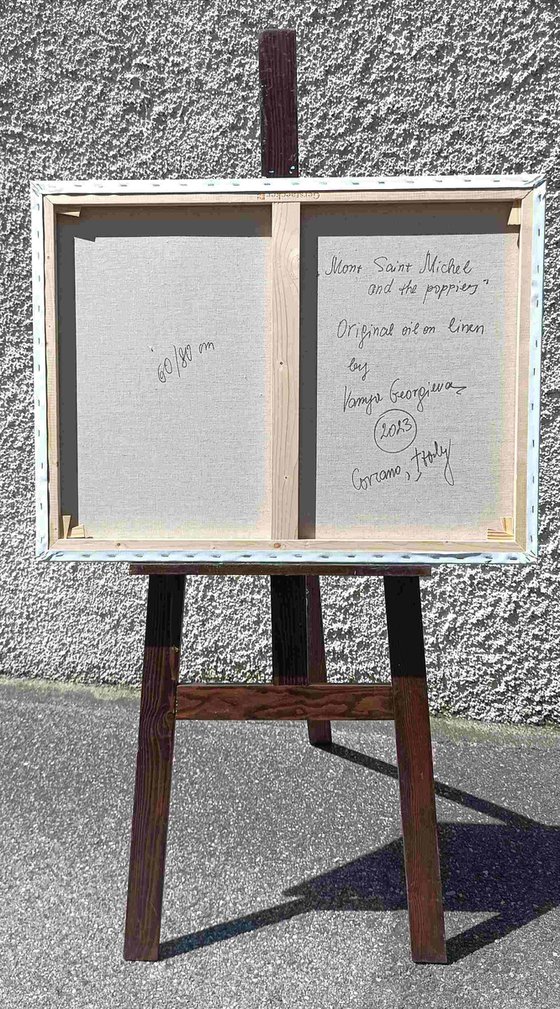 Gerstaecker
60/80 cm
"Mont Saint Michel
and the poppies"
Original oil on linen
by
Vanya Georgieva
2023
Coriano, Italy